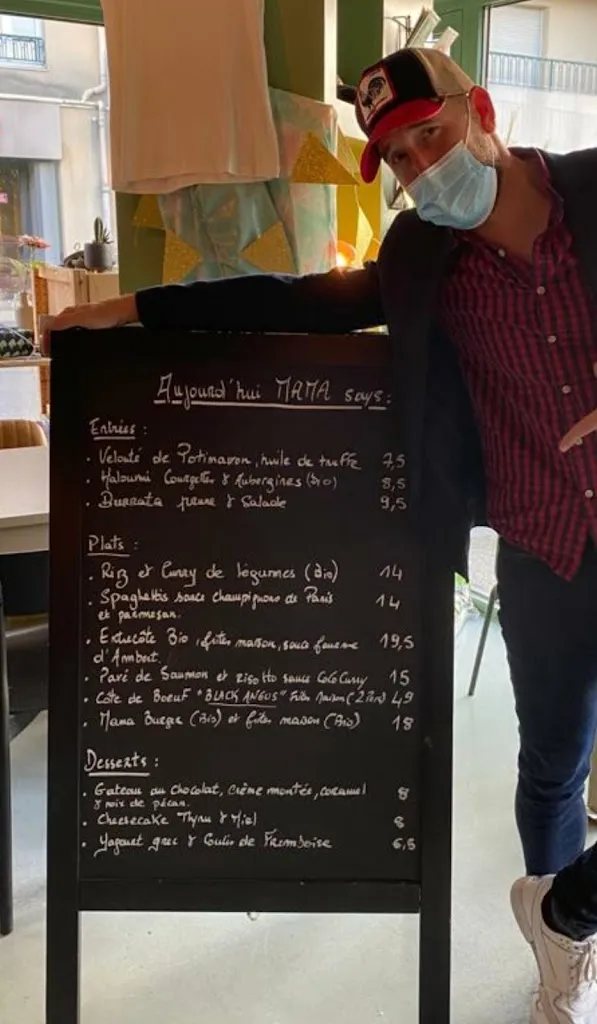 Aujourd'hui MAMA says:
Entrées :
• Velouté de Potimaron, huile de truffe 7,5
• Haloumi Courgettes & Aubergines (Bio) 8,5
• Burrata prune & Salade 9,5
Plats :
• Riz et Curry de légumes (Bio) 14
• Spaghettis sauce champignons de Paris 14
et parmesan.
• Entrecôte Bio, frites maison, sauce fourme 19,5
d'Ambert.
• Pavé de Saumon et risotto sauce CocoCurry 15
• Côte de Boeuf "BLACK ANGUS" Frites Maison (2 Pers) 49
• Mama Burger (Bio) et frites maison (Bio) 18
Desserts :
• Gateau au chocolat, crème montée, caramel 8
& noix de pécan.
• Cheesecake Thym & Miel 8
• Yaourt grec & Coulis de Framboise 6,5